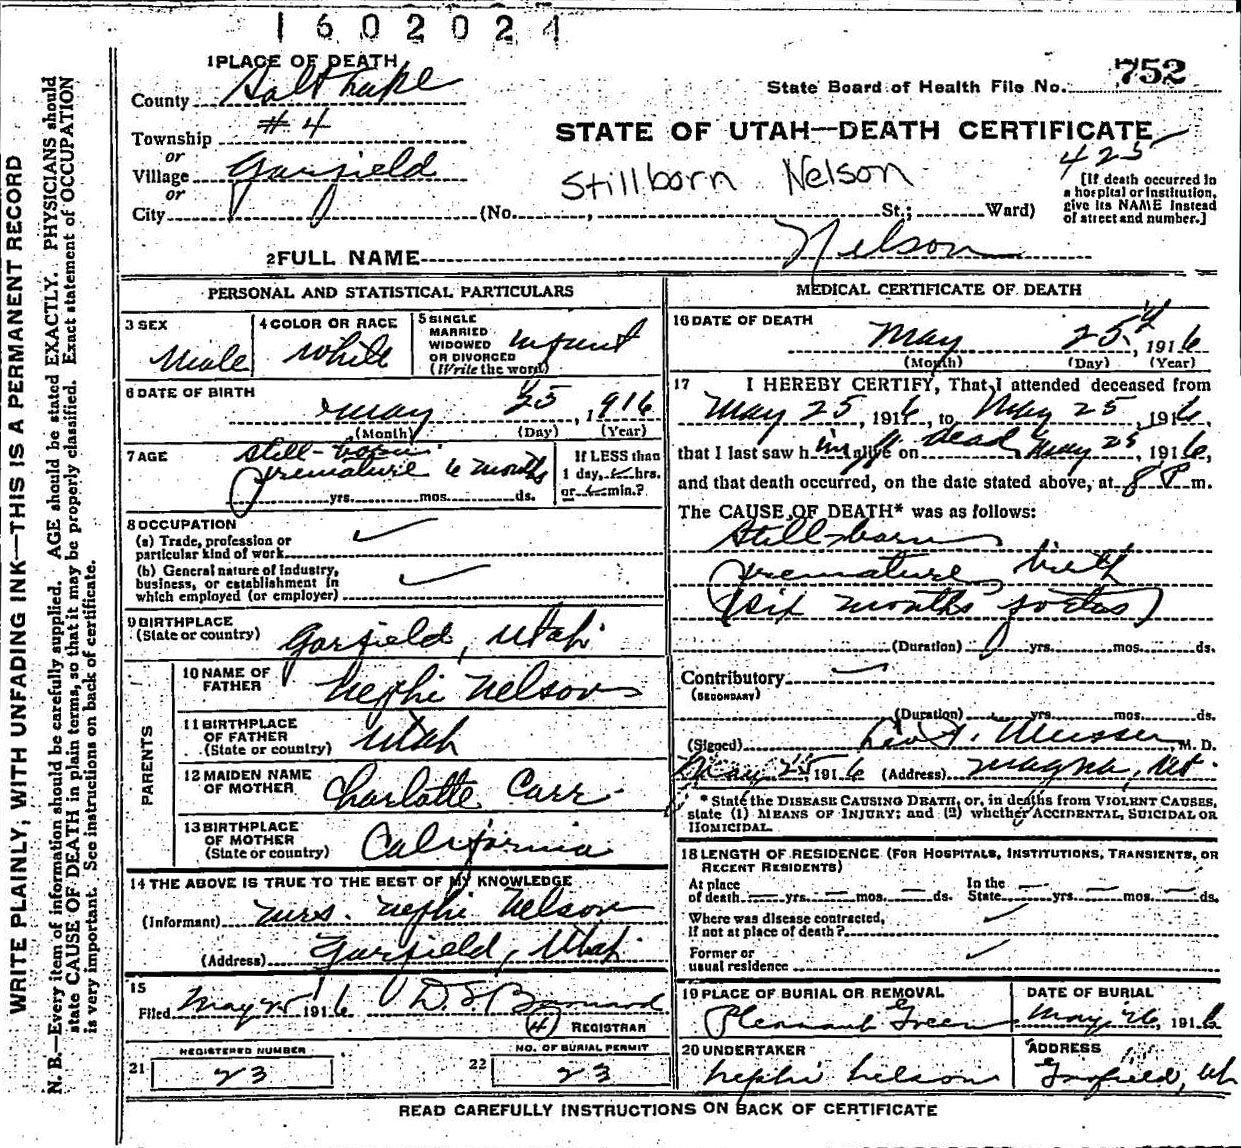 1602024
1 PLACE OF DEATH
County Salt Lake
State Board of Health File No. 752
Township #4
STATE OF UTAH—DEATH CERTIFICATE
or
Village Garfield
Stillborn Nelson
425
or
City (No. , St.; Ward)
[If death occurred in
a hospital or institution,
give its NAME instead
of street and number.]
2 FULL NAME Nelson
PERSONAL AND STATISTICAL PARTICULARS
3 SEX
Male
4 COLOR OR RACE
White
5 SINGLE
MARRIED
WIDOWED
OR DIVORCED
(Write the word)
infant
6 DATE OF BIRTH
May 25, 1916
(Month) (Day) (Year)
7 AGE
Still-born
premature 6 months
yrs. mos. ds.
If LESS than
1 day, hrs.
or min.?
8 OCCUPATION
(a) Trade, profession or
particular kind of work
(b) General nature of industry,
business, or establishment in
which employed (or employer)
9 BIRTHPLACE
(State or country)
Garfield, Utah
PARENTS
10 NAME OF
FATHER
Nephi Nelson
11 BIRTHPLACE
OF FATHER
(State or country)
Utah
12 MAIDEN NAME
OF MOTHER
Charlotte Carr
13 BIRTHPLACE
OF MOTHER
(State or country)
California
14 THE ABOVE IS TRUE TO THE BEST OF MY KNOWLEDGE
(Informant) Mrs. Nephi Nelson
(Address) Garfield, Utah
15
Filed May 25 1916 D. S. Barnard
REGISTRAR
REGISTERED NUMBER
21 23
NO. OF BURIAL PERMIT
22 23
MEDICAL CERTIFICATE OF DEATH
16 DATE OF DEATH
May 25, 1916
(Month) (Day) (Year)
17 I HEREBY CERTIFY, That I attended deceased from
May 25, 1916, to May 25, 1916
that I last saw him alive on dead May 25, 1916,
and that death occurred, on the date stated above, at 8 P m.
The CAUSE OF DEATH* was as follows:
Still born
premature birth
(six months foetus)
(Duration) yrs. mos. ds.
Contributory
(SECONDARY)
(Duration) yrs. mos. ds.
(Signed) M. D.
May 25, 1916 (Address) Magna, Ut.
* State the DISEASE CAUSING DEATH, or, in deaths from VIOLENT CAUSES,
state (1) MEANS OF INJURY; and (2) whether ACCIDENTAL, SUICIDAL OR
HOMICIDAL.
18 LENGTH OF RESIDENCE (FOR HOSPITALS, INSTITUTIONS, TRANSIENTS, OR
RECENT RESIDENTS)
At place
of death yrs. mos. ds.
In the
State yrs. mos. ds.
Where was disease contracted,
if not at place of death?
Former or
usual residence
19 PLACE OF BURIAL OR REMOVAL
Pleasant Green
DATE OF BURIAL
May 26, 1916
20 UNDERTAKER
Nephi Nelson
ADDRESS
Garfield, Ut
READ CAREFULLY INSTRUCTIONS ON BACK OF CERTIFICATE
WRITE PLAINLY, WITH UNFADING INK—THIS IS A PERMANENT RECORD
N. B.—Every item of information should be carefully supplied. AGE should be stated EXACTLY. PHYSICIANS should
state CAUSE OF DEATH in plain terms, so that it may be properly classified. Exact statement of OCCUPATION
is very important. See instructions on back of certificate.